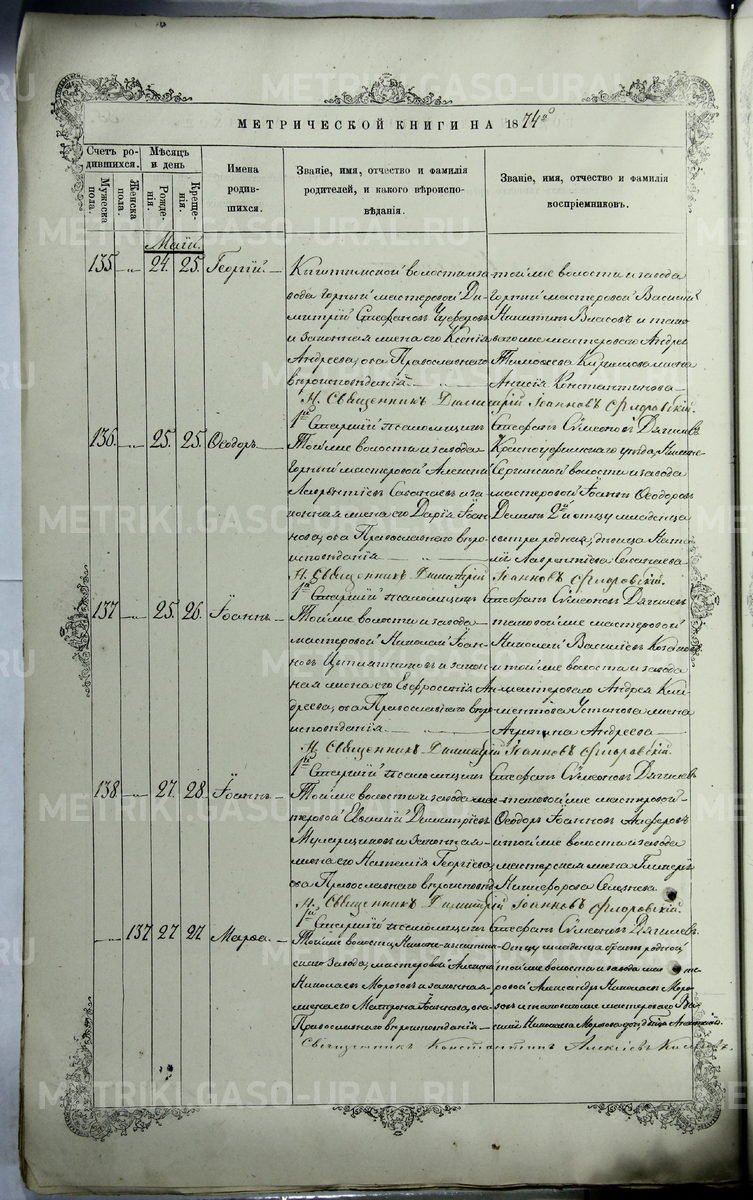 МЕТРИЧЕСКОЙ КНИГИ НА 1874й
Счетъ родившихся.
Мужеска пола.
Женска пола.
Мѣсяцъ и день
Рожденія.
Крещенія.
Имена родившихся.
Званіе, имя, отчество и фамилія родителей, и какого вѣроисповѣданія.
Званіе, имя, отчество и фамилія воспріемниковъ.
Маій.
135 — „ — 24. 25. Георгій. —
Кыштымской волости и завода горный мастеровой Димитрій Стефановъ
и законная жена его Ксенія Андреева, оба Православнаго вѣроисповѣданія
той же волости и завода горный мастеровой Василій Никитинъ Власовъ и
мастероваго Андрея Тимофеева жена Анисія Константинова
М. Священникъ Димитрій Іоанновъ Флоровскій.
1й Старшій псаломщикъ Стефанъ Сѵмеоновъ Дягилевъ
136 — „ — 25. 25. Ѳеодоръ —
Той же волости и завода горный мастеровой Алексій Лаврентіевъ
и законная жена его Дарія Іоаннова, оба Православнаго вѣроисповѣданія
Красноуфимскаго уѣзда, Нижне-Сергинской волости и завода мастеровой Іоаннъ Ѳеодоровъ
Деминъ 2й и отцу младенца сестра родная, дѣвица Лаврентіева
М. Священникъ Димитрій Іоанновъ Флоровскій.
1й Старшій псаломщикъ Стефанъ Сѵмеоновъ Дягилевъ
137 — „ — 25. 26. Іоаннъ —
Той же волости и завода мастеровой Николай Іоанновъ
и законная жена его Евфросинія Андреева, оба Православнаго вѣроисповѣданія
таковой же мастеровой Николай Васильевъ
и той же волости и завода мастероваго Андрея Климентова Устинова жена
Агрипина Андреева
М. Священникъ Димитрій Іоанновъ Флоровскій.
1й Старшій псаломщикъ Стефанъ Сѵмеоновъ Дягилевъ
138 — „ — 27. 28. Іоаннъ —
Той же волости и завода мастеровой Евѳимій Димитріевъ
и законная жена его Наталія Георгіева, оба Православнаго вѣроисповѣд.
таковой же мастеровой Ѳеодоръ Іоанновъ Алферовъ
и той же волости и завода мастерская жена Гликерія Никифорова
М. Священникъ Димитрій Іоанновъ Флоровскій.
1й Старшій псаломщикъ Стефанъ Сѵмеоновъ Дягилевъ
— „ — 137 27 27 Марѳа. —
Той же волости, Нижне-Кыштымскаго завода, мастеровой
Николаевъ Морозовъ и законная жена его Матрона Іоаннова, оба Православнаго вѣроисповѣданія —
Отцу младенца братъ родной той же волости и завода мастеровой Александръ Николаевъ Морозовъ
и таковаго же мастероваго Николаева Морозова дочь
Священникъ Константинъ Алексіевъ
METRIKI.GASO-URAL.RU